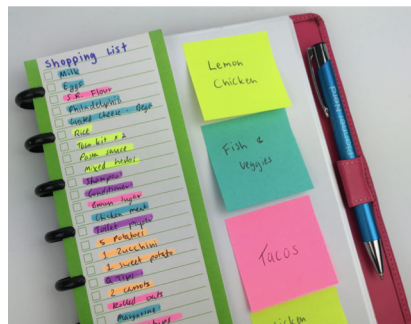 Shopping List
Milk
Eggs
S.R. Flour
Philadelphia
Grated cheese - Bega
Rice
Taco kit x 2
Pasta sauce
Mixed herbs
Shampoo
Conditioner
Brown sugar
Chicken meat
Toilet paper
5 Potatoes
1 Zucchini
1 sweet potato
Q Tips
2 carrots
Rolled oats
Margarine
Lemon
Chicken
Fish &
veggies
Tacos